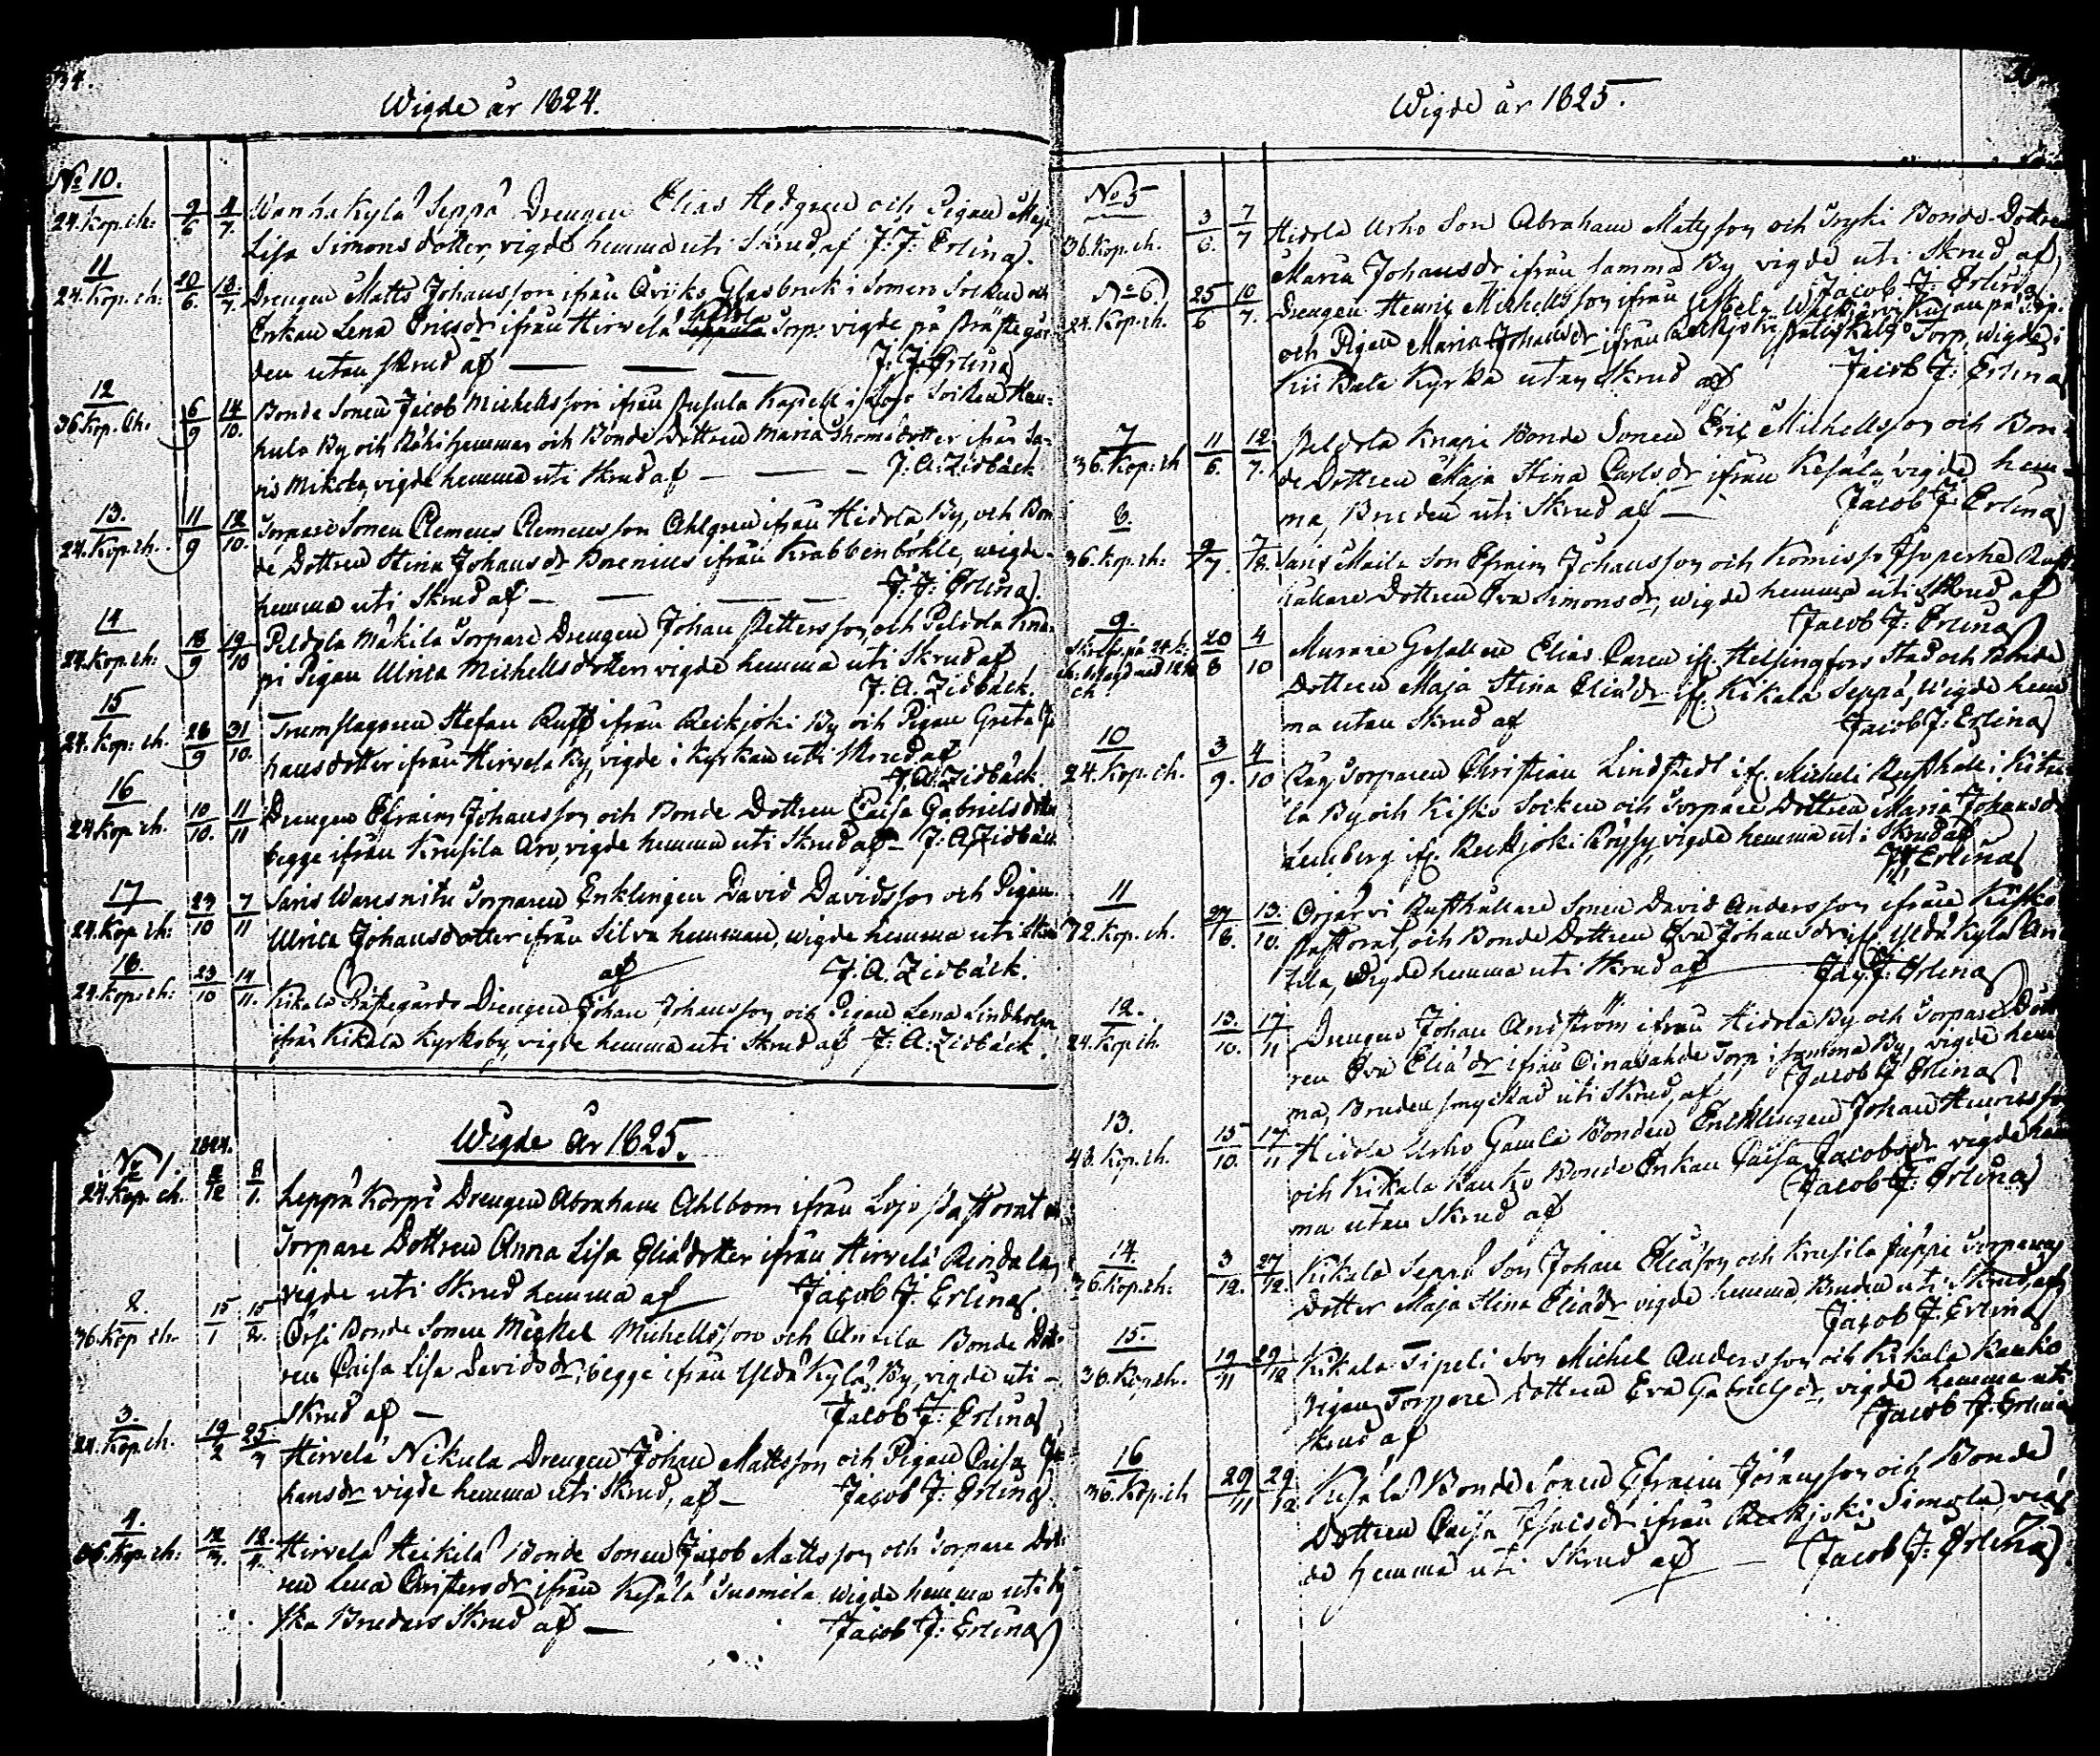 34.
Wigde år 1824.
No 10.
24. Kop. ch: 9/6 4/7 Wanhakylä Seppä Drengen Elias Hedgren och Pigan Maja
Lisa Simons dotter, vigde hemma uti Skrud, af J. J. Erlina.
11
24. Kop. ch: 20/6. 18/7. Drengen Matts Johansson ifrån Åviks Glasbruk i Somero Socken och
Enkan Lena Ericsdr ifrån Hirvelä Torp. vigde på Prästegår-
den utan Skrud af — — — J. J. Erlina
12
36 Kop. Ch. 6/9 14/10. Bonde Sonen Jacob Michelsson ifrån Pusula Kapell i Lojo Socken Hau-
hula By och hemman och Bonde Dottren Maria Thomsdotter ifrån Sa-
ris Mikola, vigde hemma uti Skrud af — — — J. A. Zidbäck
13.
24. Kop. ch. 11/9 12/10. Torpare Sonen Clemens Clemensson Ahlgren ifrån Hidola By, och Bon-
de Dottren Stina Johansdr Borenius ifrån Krabbenböhle, wigde
hemma uti Skrud af — — — — J. J. Erlina.
14
24. Kop. ch: 18/9 19/10 Peldola Mäkilä Torpare Drengen Johan Pettersson, och Peldola Kna-
pi Pigan Ulrica Michellsdotter vigde hemma uti Skrud af
J. A. Zidbäck.
15
24. Kop: ch. 26/9 31/10. Trumslagaren Stefan Ruff ifrån Reckjoki By och Pigan Greta Jo-
hansdotter ifrån Hirvela By, vigde i Kyrkan uti Skrud af
J. A. Zidbäck
16
24 Kop ch. 10/10. 11/11 Drengen Efraim Johansson och Bonde Dottren Caisa Gabrielsdotter
begge ifrån Krusila Aro, vigde hemma uti Skrud af — J. A. Zidbäck
17
24. Kop ch: 23/10 7/11 Saris Waresnitu Torparen Enklingen David Davidsson och Pigan
Ulrica Johansdotter ifrån Silva hemman, wigde hemma uti Skrud
af J. A. Zidbäck.
18.
24. Kop: ch: 23/10 14/11. Kikala Prästegårds Drengen Johan Johansson och Pigan Lena Lindholm
ifrån Kikala Kyrkoby, vigde hemma uti Skrud af J. A. Zidbäck.
Wigde År 1825.
1824.
No 1.
24. Kop. ch. 8/1. Leppä Korpi Drengen Abraham Ahlbom ifrån Lojo Pastorat och
Torpare Dottren Anna Lisa Eliædotter ifrån Hirvelä Rindala,
vigde uti Skrud hemma af Jacob J. Erlina.
2.
36. Kop ch. 15/1 15/2. Örsi Bonde Sonen Michel Michellsson och Antila Bonde Dot-
ren Caisa Lisa Davidsdr, begge ifrån Yldä Kylä By, vigde uti —
Skrud af — Jacob J: Erlina
3.
24. Kop. ch. 19/2 25/3 Hirvelä Nikula Drengen Johan Mattsson och Pigan Caisa Jo-
hansdr vigde hemma uti Skrud, af — Jacob J. Erlina
4.
36. Kop. ch: 12/3. 12/4. Hirvelä Heikilä Bonde Sonen Jacob Mattsson och Torpare Dot-
ren Lena Christersdr ifrån Kesälä Suomela wigde hemma uti
ska Brudens Skrud af — Jacob J: Erlina
Wigde år 1825.
No 5
36. Kop. ch. 3/6. 7/7 Hidola Urho Son Abraham Mattsson och Bonde Dottren
Maria Johansdr, ifrån samma By, vigde uti Skrud, af
Jacob J. Erlina
No 6.
24. Kop. ch. 25/6 10/7. Drengen Henric Michellsson ifrån
och Pigan Maria Johansdr ifrån Torp, wigde i
Kiikala Kyrka utan Skrud af Jacob J: Erlina
7
36. Kop: ch 11/6. 12/7. Peldola Knapi Bonde Sonen Eric Michellsson och Bon-
de Dottren Maja Stina Carlsdr ifrån Kesälä, vigde hem-
ma, Bruden uti Skrud af — Jacob J: Erlina
8.
36. Kop. ch: 9/7. 7/8. Saris Maila Son Efraim Johansson och Komisso Isoperhe Rust-
hållare Dottren Eva Simonsdr, wigde hemma uti Skrud af
Jacob J. Erlina
9.
20/8 4/10 Murare Gesällen Elias Caren ifr. Helsingfors Stad och Bonde
Dottren Maja Stina Eliædr ifr. Kikala Seppä, Wigde hem-
ma utan Skrud af Jacob J: Erlina
10
24. Kop. ch. 3/9. 4/10 Torparen Christian Lindstedt ifr. Micheli Rusthåll i Kitu-
la By och Kisko Socken och Torpare Dottren Maria Johansdr
Lemberg ifr. Reckjoki Röyssy, vigde hemma uti Skrud af
J. J. Erlina
11
72. Kop. ch. 13/10. Orijärvi Rusthållare Sonen David Andersson ifrån Kisko
Pastorat, och Bonde Dottren Eva Johansdr ifr. Yldä Kylä An-
tila, wigde hemma uti Skrud af Jac. J: Erlina
12.
24. Kop. ch. 13/10. 17/11 Drengen Johan Andström ifrån Hidola By och Torpare Dott-
ren Eva Eliædr ifrån Torp i samma By, vigde hem-
ma, Bruden smyckad uti Skrud, af Jacob J. Erlina
13.
48. Kop. ch. 15/10. 17/11 Hidola Urho Gamla Bonden Enklingen Johan Henricsson
och Kikala Kauko Bonde Enkan Caisa Jacobsdr vigde hem-
ma utan Skrud af Jacob J: Erlina
14.
36. Kop. ch. 3/12. 27/12. Kikala Seppä Son Johan Eliæson och Krusila Jäppi Torparens
Dotter Maja Stina Eliædr vigde hemma, Bruden uti Skrud, af
Jacob J. Erlina
15.
36. Kop. ch. 19/11 29/12 Kikala Tipeli Son Michel Andersson och Kikala Kauko
Pigan, Torpare Dottren Eva Gabrielsdr, vigde hemma uti
Skrud af Jacob J. Erlina
16
36. Kop: ch 29/11 29/12 Kesälä Bonde Sonen Efraim Göransson och Bonde
Dottren Caisa Isacsdr ifrån Reckjoki Simola, vig-
de hemma uti Skrud af — Jacob J: Erlina